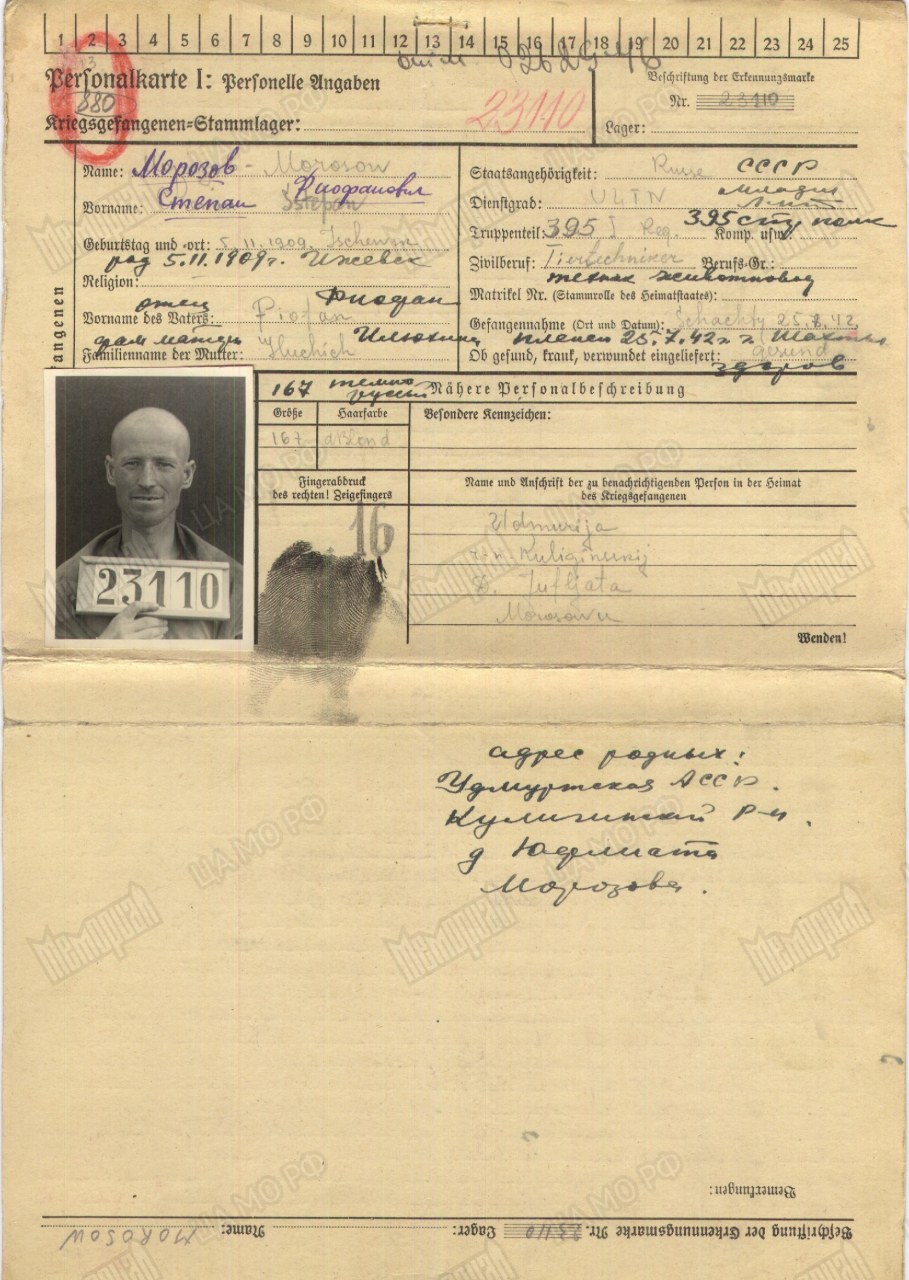 1 2 3 4 5 6 7 8 9 10 11 12 13 14 15 16 17 18 19 20 21 22 23 24 25
Personalkarte I: Personelle Angaben
880
Kriegsgefangenen-Stammlager:
23110
Beschriftung der Erkennungsmarke
Nr. 23110
Lager:
Name: Морозов - Morosow
Степан Фиофанович
Vorname: Sstepan
Geburtstag und -ort: 5.11.1909.
род 5.11.1909 г. Ижевск
Religion:
отец Фиофан
Vorname des Vaters: Fiofan
фам матери Илюхина
Familienname der Mutter:
Staatsangehörigkeit: Russe СССР
Dienstgrad: ULTN
Младш Л-нт
Truppenteil: 395 I Reg. Komp. usw.:
395 стр полк
Zivilberuf: Tiertechniker Berufs-Gr.:
техник животновод
Matrikel Nr. (Stammrolle des Heimatstaates):
Gefangennahme (Ort und Datum): Schachty 25.7.42
пленен 25.7.42 г. г. Шахты
Ob gesund, krank, verwundet eingeliefert: gesund
здоров
fangenen
167 темно русый
Nähere Personalbeschreibung
Größe Haarfarbe Besondere Kennzeichen:
167 dblond
Fingerabdruck
des rechten! Zeigefingers
16
Name und Anschrift der zu benachrichtigenden Person in der Heimat
des Kriegsgefangenen
Udmurija
r-n Kuliginskij
D. Jufljata
Morosowa
Wenden!
23110
адрес родных:
Удмуртская АССР.
Кулигинский р-н.
д Юфлята
Морозова.
Bemerkungen:
Beschriftung der Erkennungsmarke Nr. 23110 Lager: Name: MOROSOW
Мемориал
ЦАМО РФ